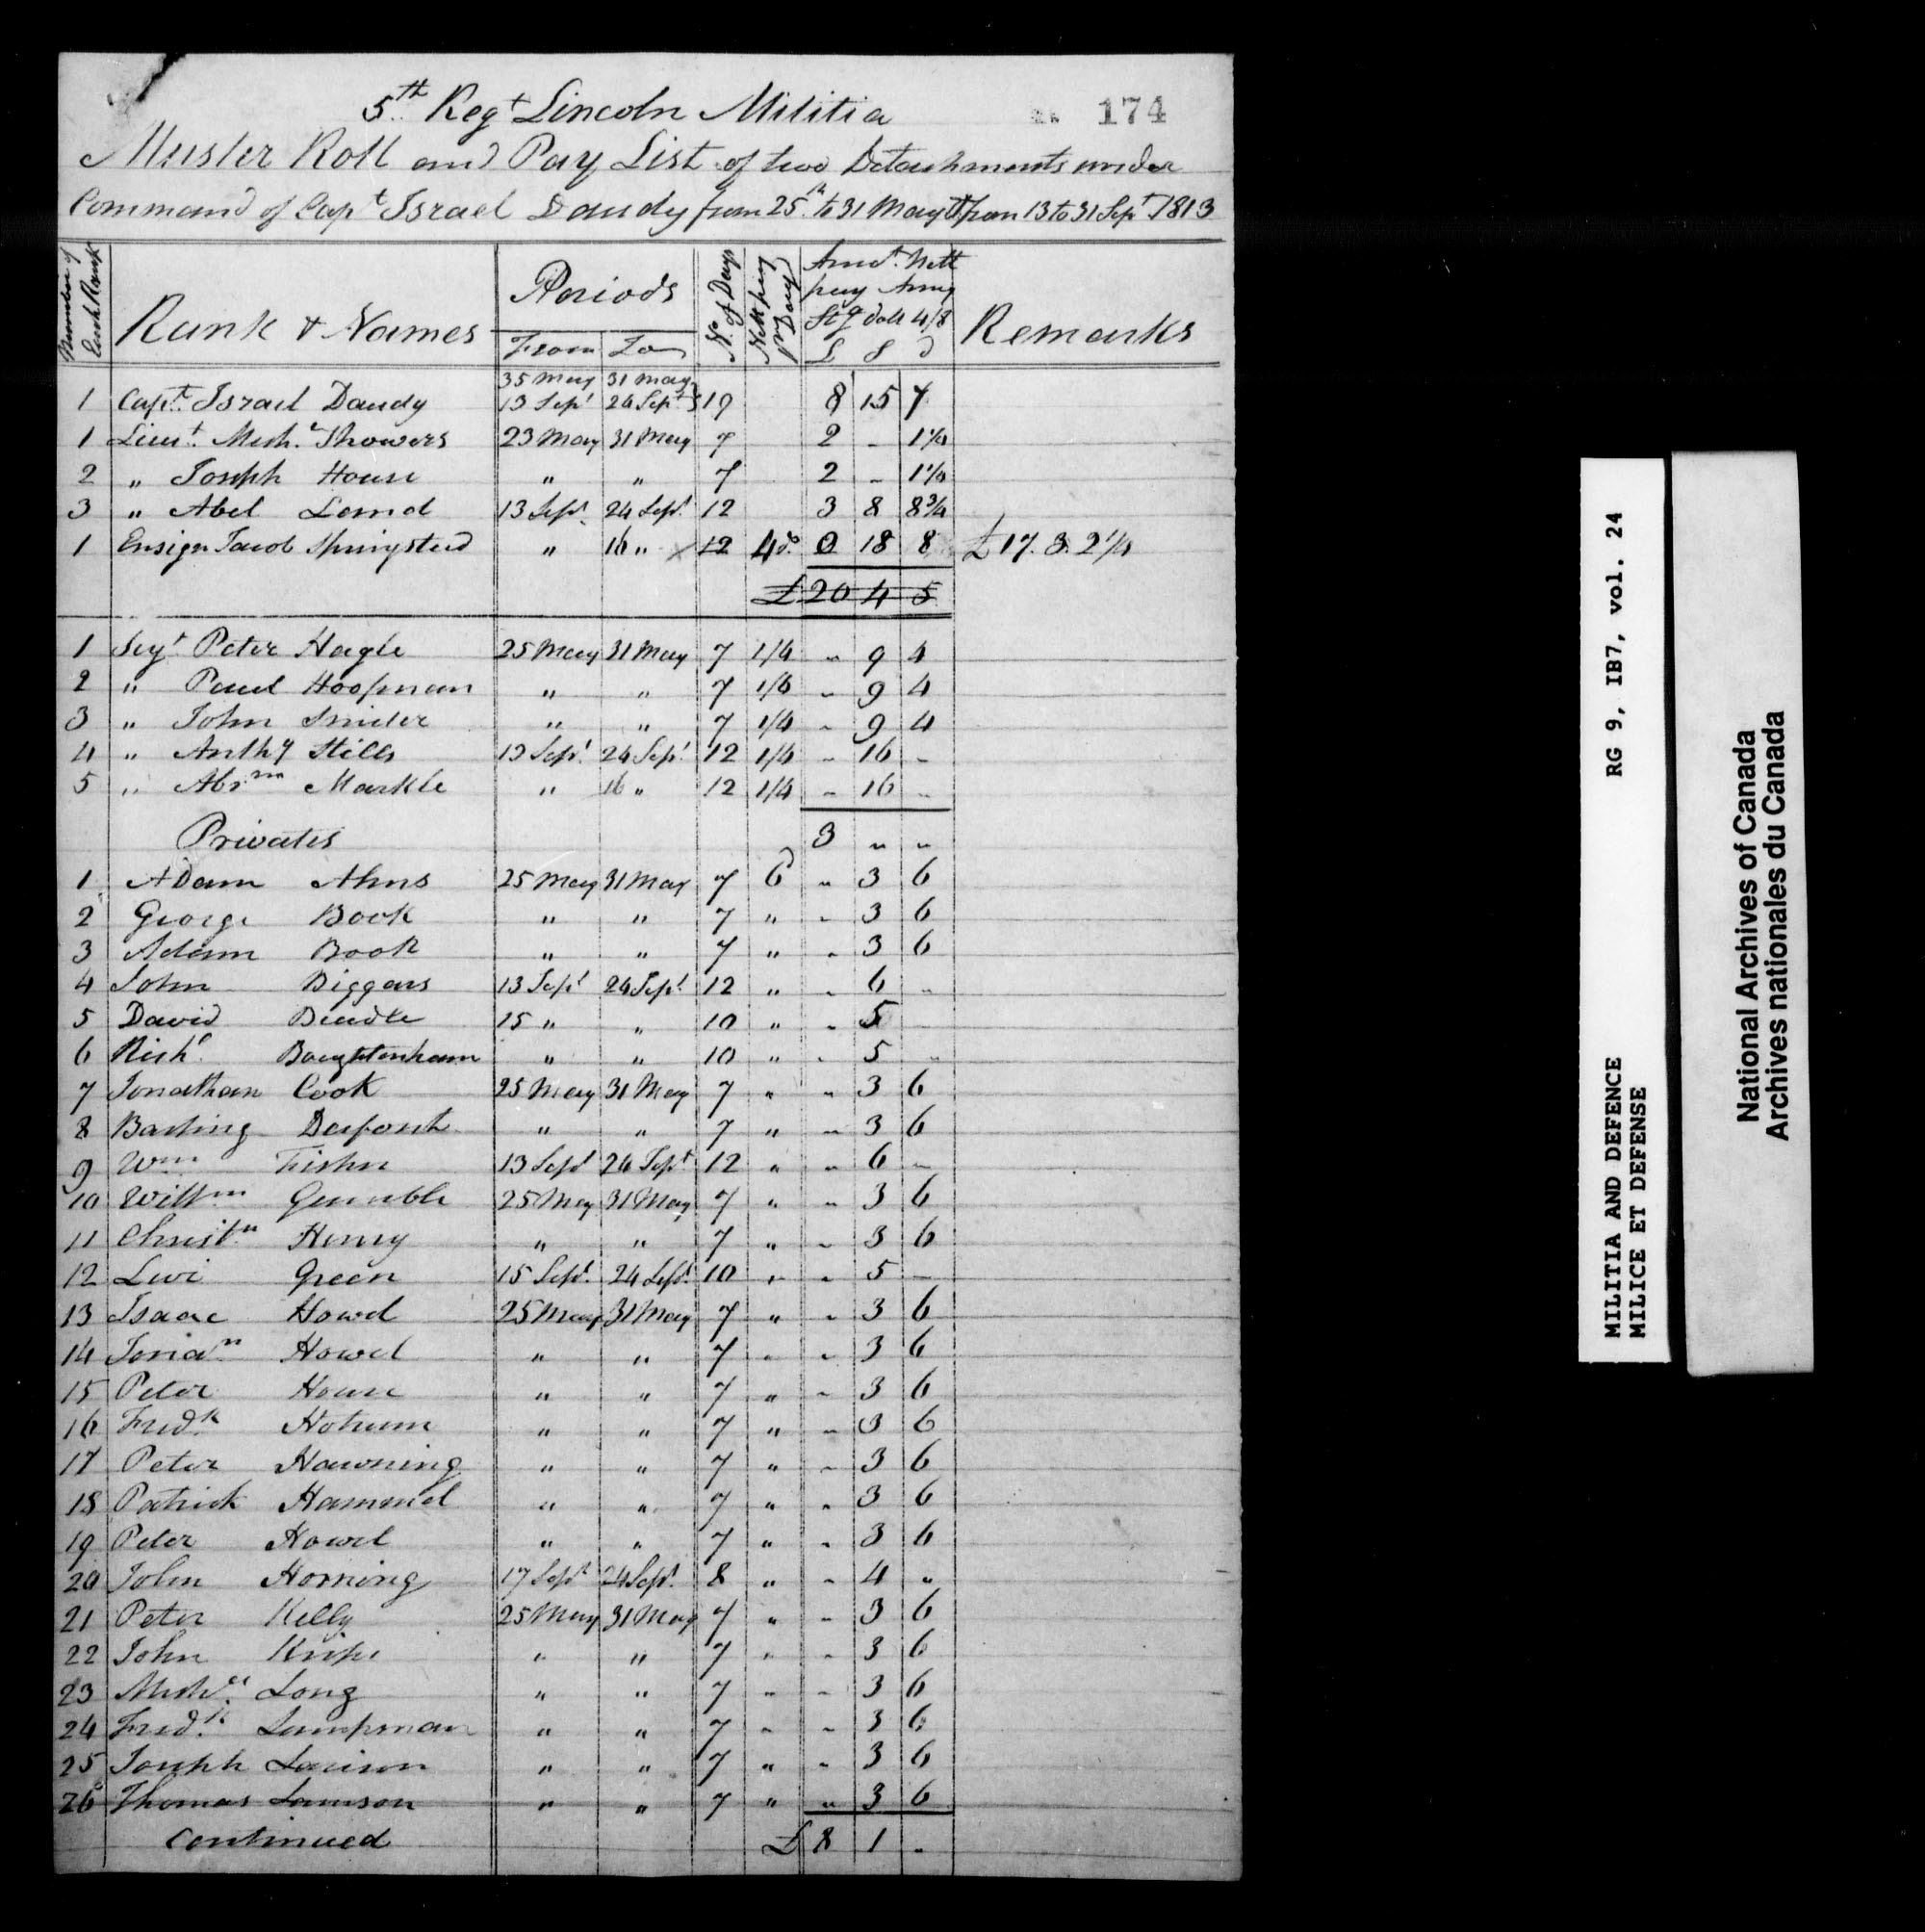 5th Regt Lincoln Militia
174
Muster Roll and Pay List of two Detachments under
Command of Capt Israel Dandy from 25th to 31 May & from 13 to 31 Sept 1813
Number of Each Rank | Rank & Names | Periods | No of Days | Nett pay pr Day | Amot Nett pay Army Stg doll 4/8 | Remarks
From To £ S d
35 May 31 May
1 Capt Israel Dandy 13 Sept 24 Sept } 19 8 15 7
1 Lieut Mich.l Showers 23 May 31 May 7 2 - 1 1/4
2 " Joseph House " " 7 2 - 1 1/4
3 " Abel Land 13 Sept 24 Sept 12 3 8 8 3/4
1 Ensign Jacob Springsted " 16 " x 12 4 do 0 18 8 £17. 3. 2 1/4
£20 4 5
1 Sejt Peter Hagle 25 May 31 May 7 1/4 " 9 4
2 " Paul Hoopman " " 7 1/4 " 9 4
3 " John Snider " " 7 1/4 " 9 4
4 " Anthy Stills 13 Sept 24 Sept 12 1/4 " 16 -
5 " Abrm Markle " 16 " 12 1/4 " 16 "
Privates 3 " "
1 Adam Ahns 25 May 31 May 7 6d " 3 6
2 George Book " " 7 " " 3 6
3 Adam Book " " 7 " " 3 6
4 John Biggars 13 Sept 24 Sept 12 " " 6 "
5 David Beadle 15 " " 10 " " 5 -
6 Richd " " 10 " " 5 "
7 Jonathan Cook 25 May 31 May 7 " " 3 6
8 " " 7 " " 3 6
9 Wm Fisher 13 Sept 24 Sept 12 " " 6 -
10 Willm Gamble 25 May 31 May 7 " " 3 6
11 Christn Henry " " 7 " " 3 6
12 Levi Green 15 Sept 24 Sept 10 " " 5 -
13 Isaac Howel 25 May 31 May 7 " " 3 6
14 Jonan Howel " " 7 " " 3 6
15 Peter House " " 7 " " 3 6
16 Fredk " " 7 " " 3 6
17 Peter Hawning " " 7 " " 3 6
18 Patrick Hammel " " 7 " " 3 6
19 Peter Howel " " 7 " " 3 6
20 John Horning 17 Sept 24 Sept 8 " " 4 "
21 Peter Kelly 25 May 31 May 7 " " 3 6
22 John " " 7 " " 3 6
23 Mich.el Long " " 7 " " 3 6
24 Fredk Lampman " " 7 " " 3 6
25 Joseph Larison " " 7 " " 3 6
26 Thomas Lamson " " 7 " " 3 6
Continued £ 8 1 "
MILITIA AND DEFENCE RG 9, IB7, vol. 24
MILICE ET DEFENSE
National Archives of Canada
Archives nationales du Canada